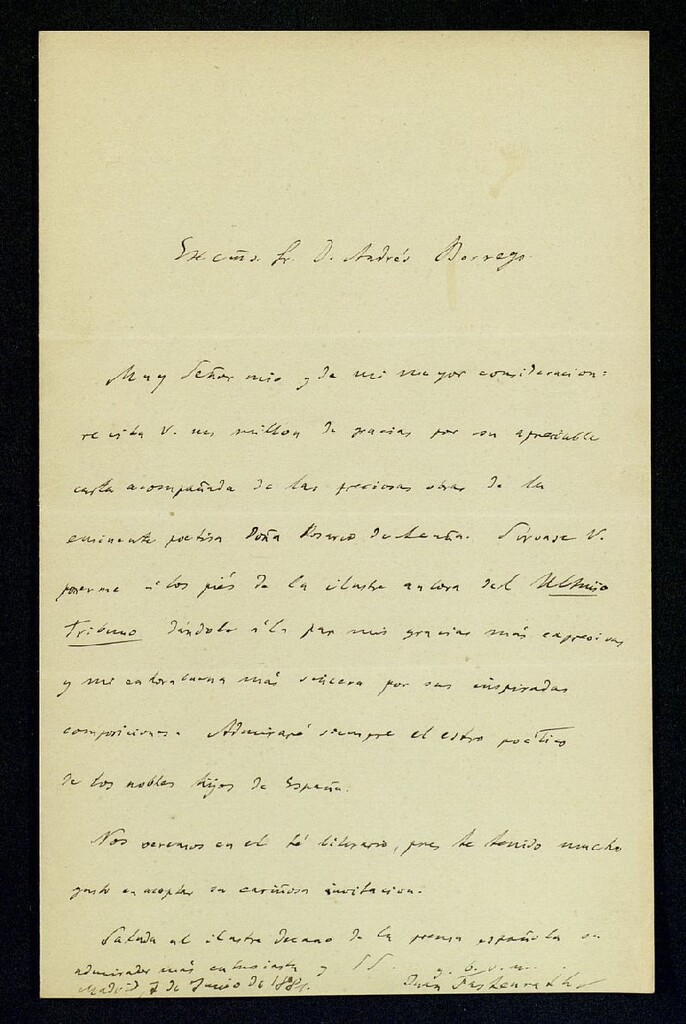 Excmo. Sr. D. Andrés Borrego.
Muy Señor mio y de mi mayor consideracion:
reciba V. un millon de gracias por su apreciable
carta acompañada de las preciosas obras de la
eminente poetisa Doña Rosario de Acuña. Sírvase V.
ponerme á los piés de la ilustre autora del Ultimo
Tribuno dándole á la par mis gracias más expresivas
y mi enhorabuena más sincera por sus inspiradas
composiciones. Admiraré siempre el estro poético
de los nobles hijos de España.
Nos veremos en el té literario, pues he tenido mucho
gusto en aceptar su cariñosa invitacion.
Saluda al ilustre decano de la prensa española su
admirador más entusiasta y SS. q. b. s. m.
Madrid 7 de Junio de Juan Fastenrath